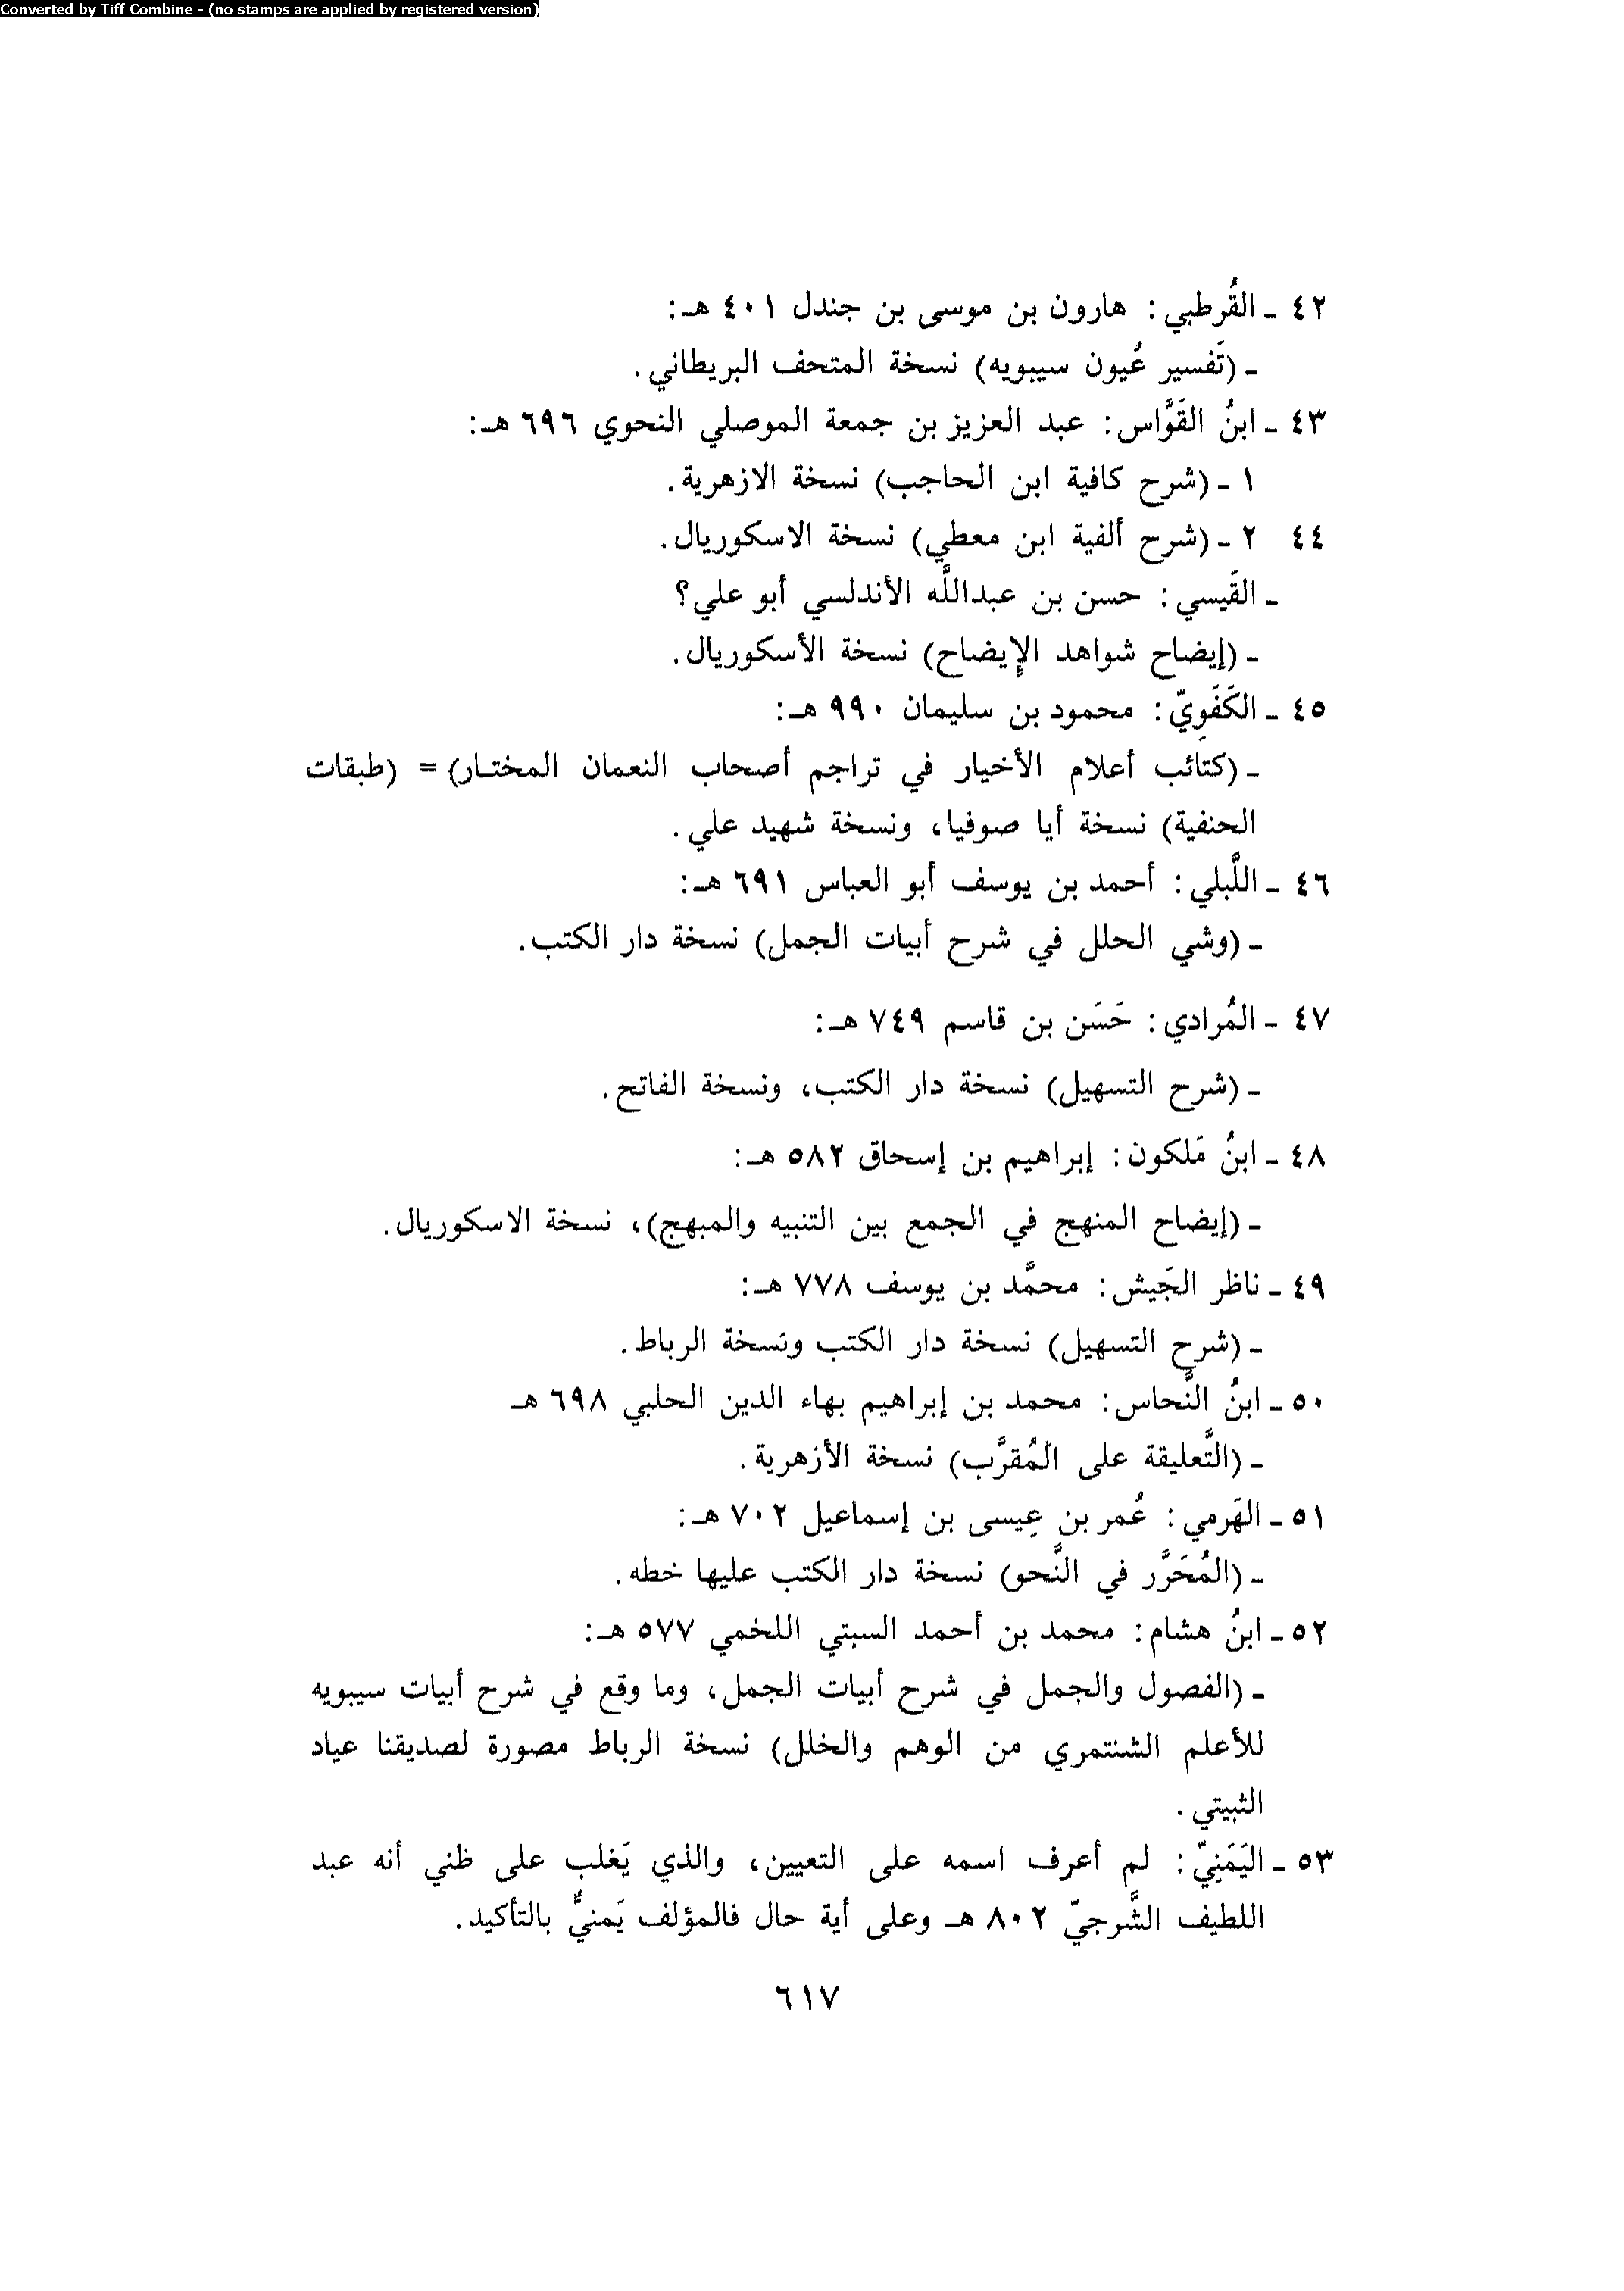 Converted by Tiff Combine - (no stamps are applied by registered version)
٤٢ ـ القُرطبي: هارون بن موسى بن جندل ٤٠١ هـ:
ـ (تَفسير عُيون سيبويه) نسخة المتحف البريطاني.
٤٣ ـ ابنُ القَوَّاس: عبد العزيز بن جمعة الموصلي النحوي ٦٩٦ هـ:
١ ـ (شرح كافية ابن الحاجب) نسخة الازهرية.
٤٤ ٢ ـ (شرح ألفية ابن معطي) نسخة الاسكوريال.
ـ القَيسي: حسن بن عبداللَّه الأندلسي أبو علي؟
ـ (إيضاح شواهد الإيضاح) نسخة الأسكوريال.
٤٥ ـ الكَفَوِيّ: محمود بن سليمان ٩٩٠ هـ:
ـ (كتائب أعلام الأخيار في تراجم أصحاب النعمان المختـار) = (طبقات
الحنفية) نسخة أيا صوفيا، ونسخة شهيد علي.
٤٦ ـ اللَّبلي: أحمد بن يوسف أبو العباس ٦٩١ هـ:
ـ (وشي الحلل في شرح أبيات الجمل) نسخة دار الكتب.
٤٧ ـ المُرادي: حَسَن بن قاسم ٧٤٩ هـ:
ـ (شرح التسهيل) نسخة دار الكتب، ونسخة الفاتح.
٤٨ ـ ابنُ مَلكون: إبراهيم بن إسحاق ٥٨٢ هـ:
ـ (إيضاح المنهج في الجمع بين التنبيه والمبهج)، نسخة الاسكوريال.
٤٩ ـ ناظر الجَيش: محمَّد بن يوسف ٧٧٨ هـ:
ـ (شرح التسهيل) نسخة دار الكتب ونسخة الرباط.
٥٠ ـ ابنُ النَّحاس: محمد بن إبراهيم بهاء الدين الحلبي ٦٩٨ هـ
ـ (التَّعليقة على المُقرَّب) نسخة الأزهرية.
٥١ ـ الهَرمي: عُمر بن عِيسى بن إسماعيل ٧٠٢ هـ:
ـ (المُحَرَّر في النَّحو) نسخة دار الكتب عليها خطه.
٥٢ ـ ابنُ هشام: محمد بن أحمد السبتي اللخمي ٥٧٧ هـ:
ـ (الفصول والجمل في شرح أبيات الجمل، وما وقع في شرح أبيات سيبويه
للأعلم الشنتمري من الوهم والخلل) نسخة الرباط مصورة لصديقنا عياد
الثبيتي.
٥٣ ـ اليَمَنِيّ: لم أعرف اسمه على التعيين، والذي يَغلب على ظني أنه عبد
اللطيف الشَّرجيّ ٨٠٢ هـ وعلى أية حال فالمؤلف يَمنيٌّ بالتأكيد.
٦١٧